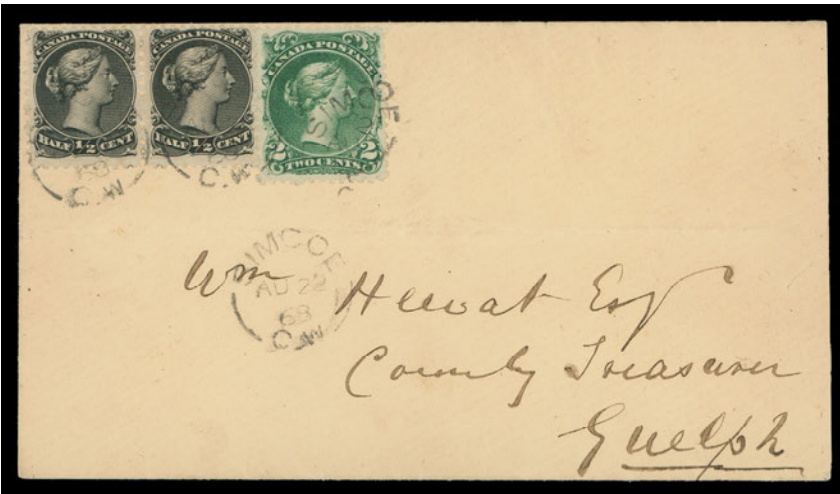 CANADA POSTAGE
HALF 1/2 CENT
CANADA POSTAGE
HALF 1/2 CENT
CANADA POSTAGE
2 TWO CENTS 2
68
C.W
C.W
SIMCOE
SIMCOE
AU 22
68
C.W
Wm Hewat Esq
County Treasurer
Guelph